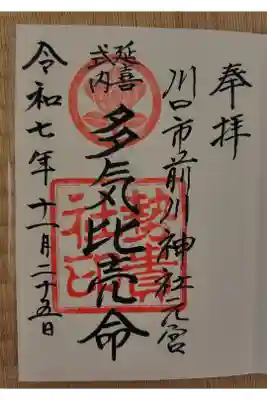 奉拝
川口市前川神社元宮
延喜
式内
多気比売命
令和七年十一月二十五日